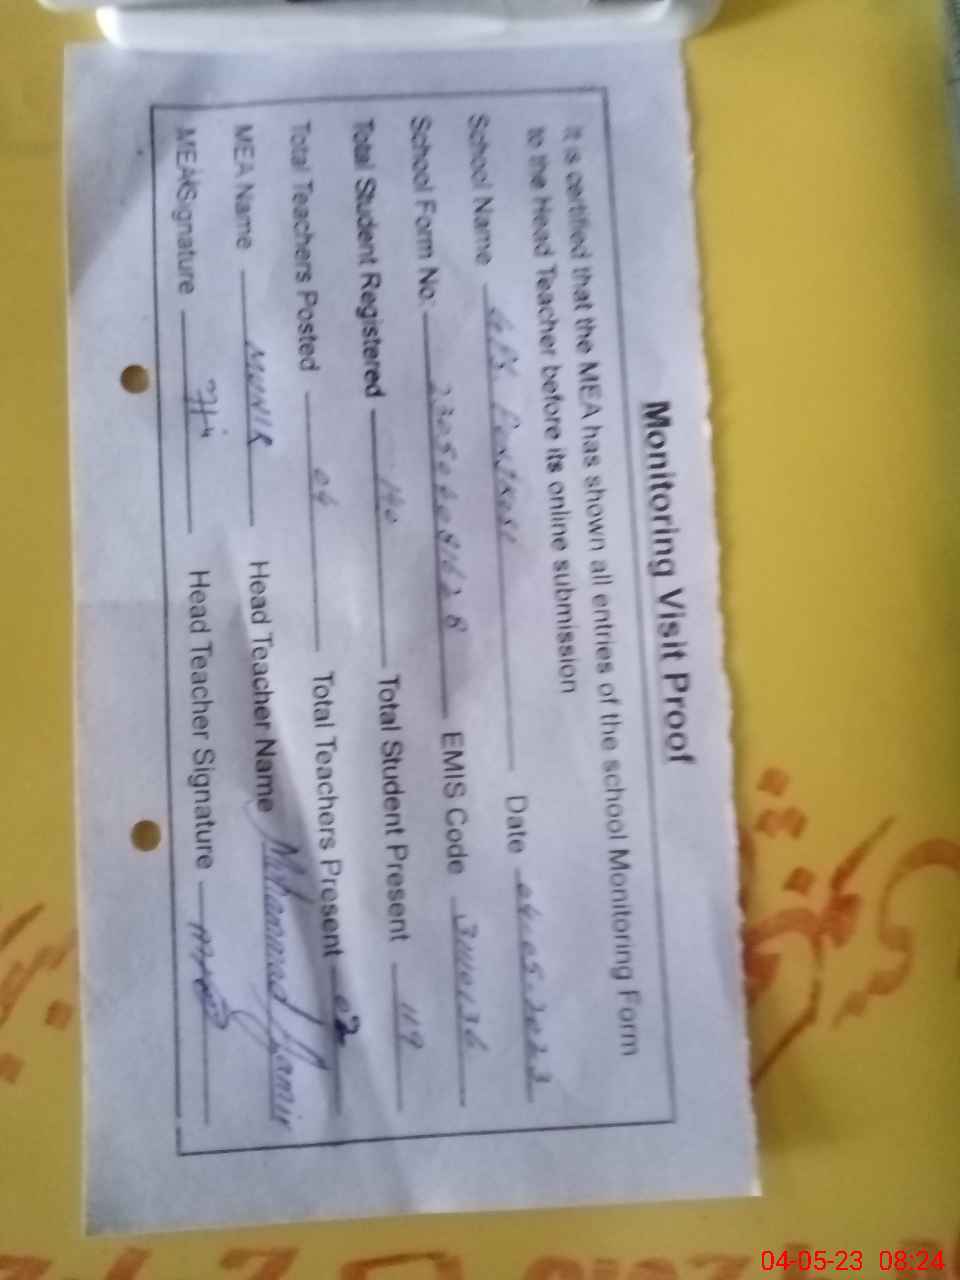 Monitoring Visit Proof
It is certified that the MEA has shown all entries of the school Monitoring Form
to the Head Teacher before its online submission
School Name GPS. Date 04.05.2023
School Form No: 230504081628 EMIS Code 31110136
Total Student Registered 140 Total Student Present 119
Total Teachers Posted 04 Total Teachers Present 02
MEA Name MUNIR Head Teacher Name Muhammad Jamil
MEA Signature Head Teacher Signature
04-05-23 08:24